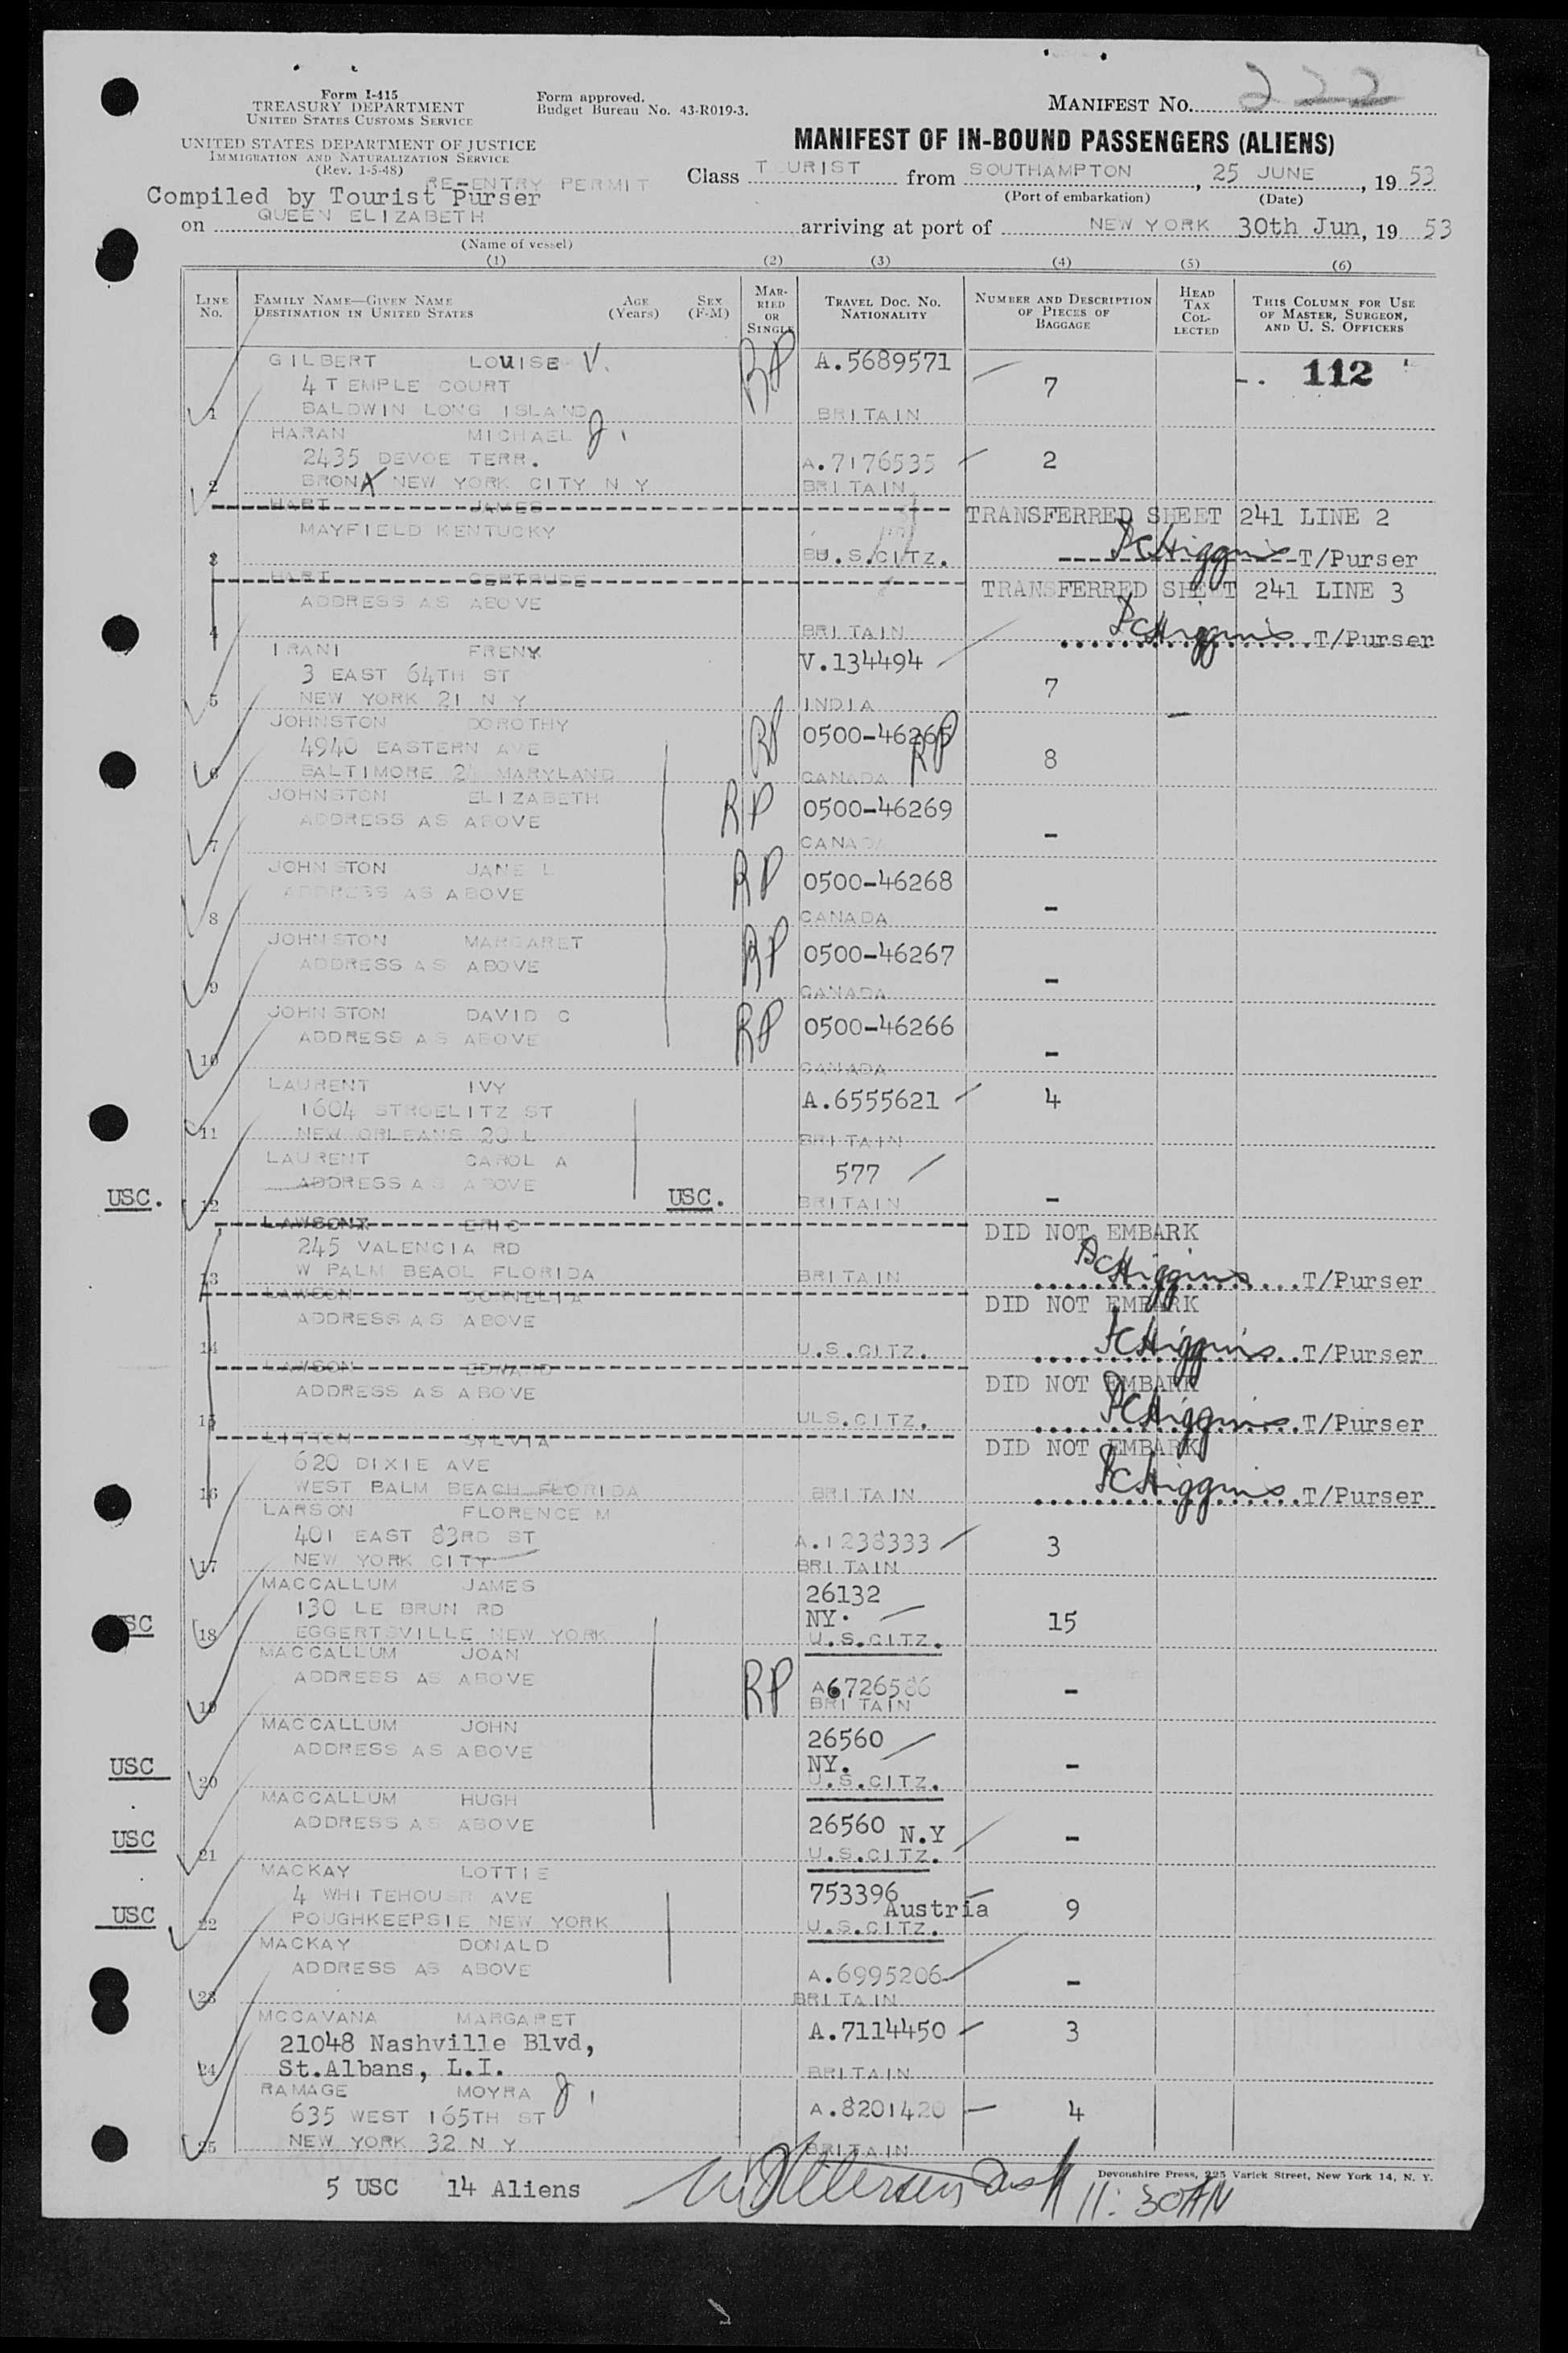 Form I-415
TREASURY DEPARTMENT
UNITED STATES CUSTOMS SERVICE
UNITED STATES DEPARTMENT OF JUSTICE
IMMIGRATION AND NATURALIZATION SERVICE
(Rev. 1-5-48)
Form approved.
Budget Bureau No. 43-R019-3.
MANIFEST No. 222
MANIFEST OF IN-BOUND PASSENGERS (ALIENS)
RE-ENTRY PERMIT
Compiled by Tourist Purser
Class T URIST from SOUTHAMPTON, 25 JUNE, 19 53
(Port of embarkation) (Date)
on QUEEN ELIZABETH arriving at port of NEW YORK 30th Jun, 19 53
(Name of vessel)
(1) (2) (3) (4) (5) (6)
LINE No. FAMILY NAME—GIVEN NAME DESTINATION IN UNITED STATES AGE (Years) SEX (F-M) MARRIED OR SINGLE TRAVEL DOC. NO. NATIONALITY NUMBER AND DESCRIPTION OF PIECES OF BAGGAGE HEAD TAX COLLECTED THIS COLUMN FOR USE OF MASTER, SURGEON, AND U. S. OFFICERS
GILBERT LOUISE V. RP A.5689571 112
4 TEMPLE COURT 7
1 BALDWIN LONG ISLAND BRITAIN
HARAN MICHAEL J.
2435 DEVOE TERR. A.7176535 2
2 BRONX NEW YORK CITY N Y BRITAIN
HART JAMES TRANSFERRED SHEET 241 LINE 2
MAYFIELD KENTUCKY
3 U.S.CITZ. Higgins T/Purser
HART GERTRUDE TRANSFERRED SHEET 241 LINE 3
ADDRESS AS ABOVE
4 BRITAIN Higgins T/Purser
IRANI FRENY V.134494
3 EAST 64TH ST 7
5 NEW YORK 21 N Y INDIA
JOHNSTON DOROTHY RP 0500-46265 RP
4940 EASTERN AVE 8
6 BALTIMORE 24 MARYLAND CANADA
JOHNSTON ELIZABETH RP 0500-46269
ADDRESS AS ABOVE -
7 CANADA
JOHNSTON JANE L RP 0500-46268
ADDRESS AS ABOVE -
8 CANADA
JOHNSTON MARGARET RP 0500-46267
ADDRESS AS ABOVE -
9 CANADA
JOHNSTON DAVID C RP 0500-46266
ADDRESS AS ABOVE -
10 CANADA
LAURENT IVY A.6555621 4
1604 STROELITZ ST
11 NEW ORLEANS 20 L BRITAIN
LAURENT CAROL A 577
ADDRESS AS ABOVE
USC. 12 USC. BRITAIN -
LAWSONX ERIC DID NOT EMBARK
245 VALENCIA RD
13 W PALM BEAOL FLORIDA BRITAIN Higgins T/Purser
LAWSON CORNELIA DID NOT EMBARK
ADDRESS AS ABOVE
14 U.S.CITZ. Higgins T/Purser
LAWSON EDWARD DID NOT EMBARK
ADDRESS AS ABOVE
15 ULS.CITZ. Higgins T/Purser
LITTON SYLVIA DID NOT EMBARK
620 DIXIE AVE
16 WEST BALM BEACH FLORIDA BRITAIN Higgins T/Purser
LARSON FLORENCE M
401 EAST 83RD ST A.1238333 3
17 NEW YORK CITY BRITAIN
MACCALLUM JAMES 26132
130 LE BRUN RD NY. 15
SC 18 EGGERTSVILLE NEW YORK U.S.CITZ.
MACCALLUM JOAN
ADDRESS AS ABOVE RP A6726586 -
19 BRITAIN
MACCALLUM JOHN 26560
ADDRESS AS ABOVE NY. -
USC 20 U.S.CITZ.
MACCALLUM HUGH
ADDRESS AS ABOVE 26560 N.Y -
USC 21 U.S.CITZ.
MACKAY LOTTIE 753396
4 WHITEHOUSE AVE Austria 9
USC 22 POUGHKEEPSIE NEW YORK U.S.CITZ.
MACKAY DONALD
ADDRESS AS ABOVE A.6995206 -
23 BRITAIN
MCCAVANA MARGARET A.7114450 3
21048 Nashville Blvd,
24 St.Albans, L.I. BRITAIN
RAMAGE MOYRA J.
635 WEST 165TH ST A.8201420 4
25 NEW YORK 32 N Y BRITAIN
Devonshire Press, 225 Varick Street, New York 14, N. Y.
5 USC 14 Aliens 11:30AM